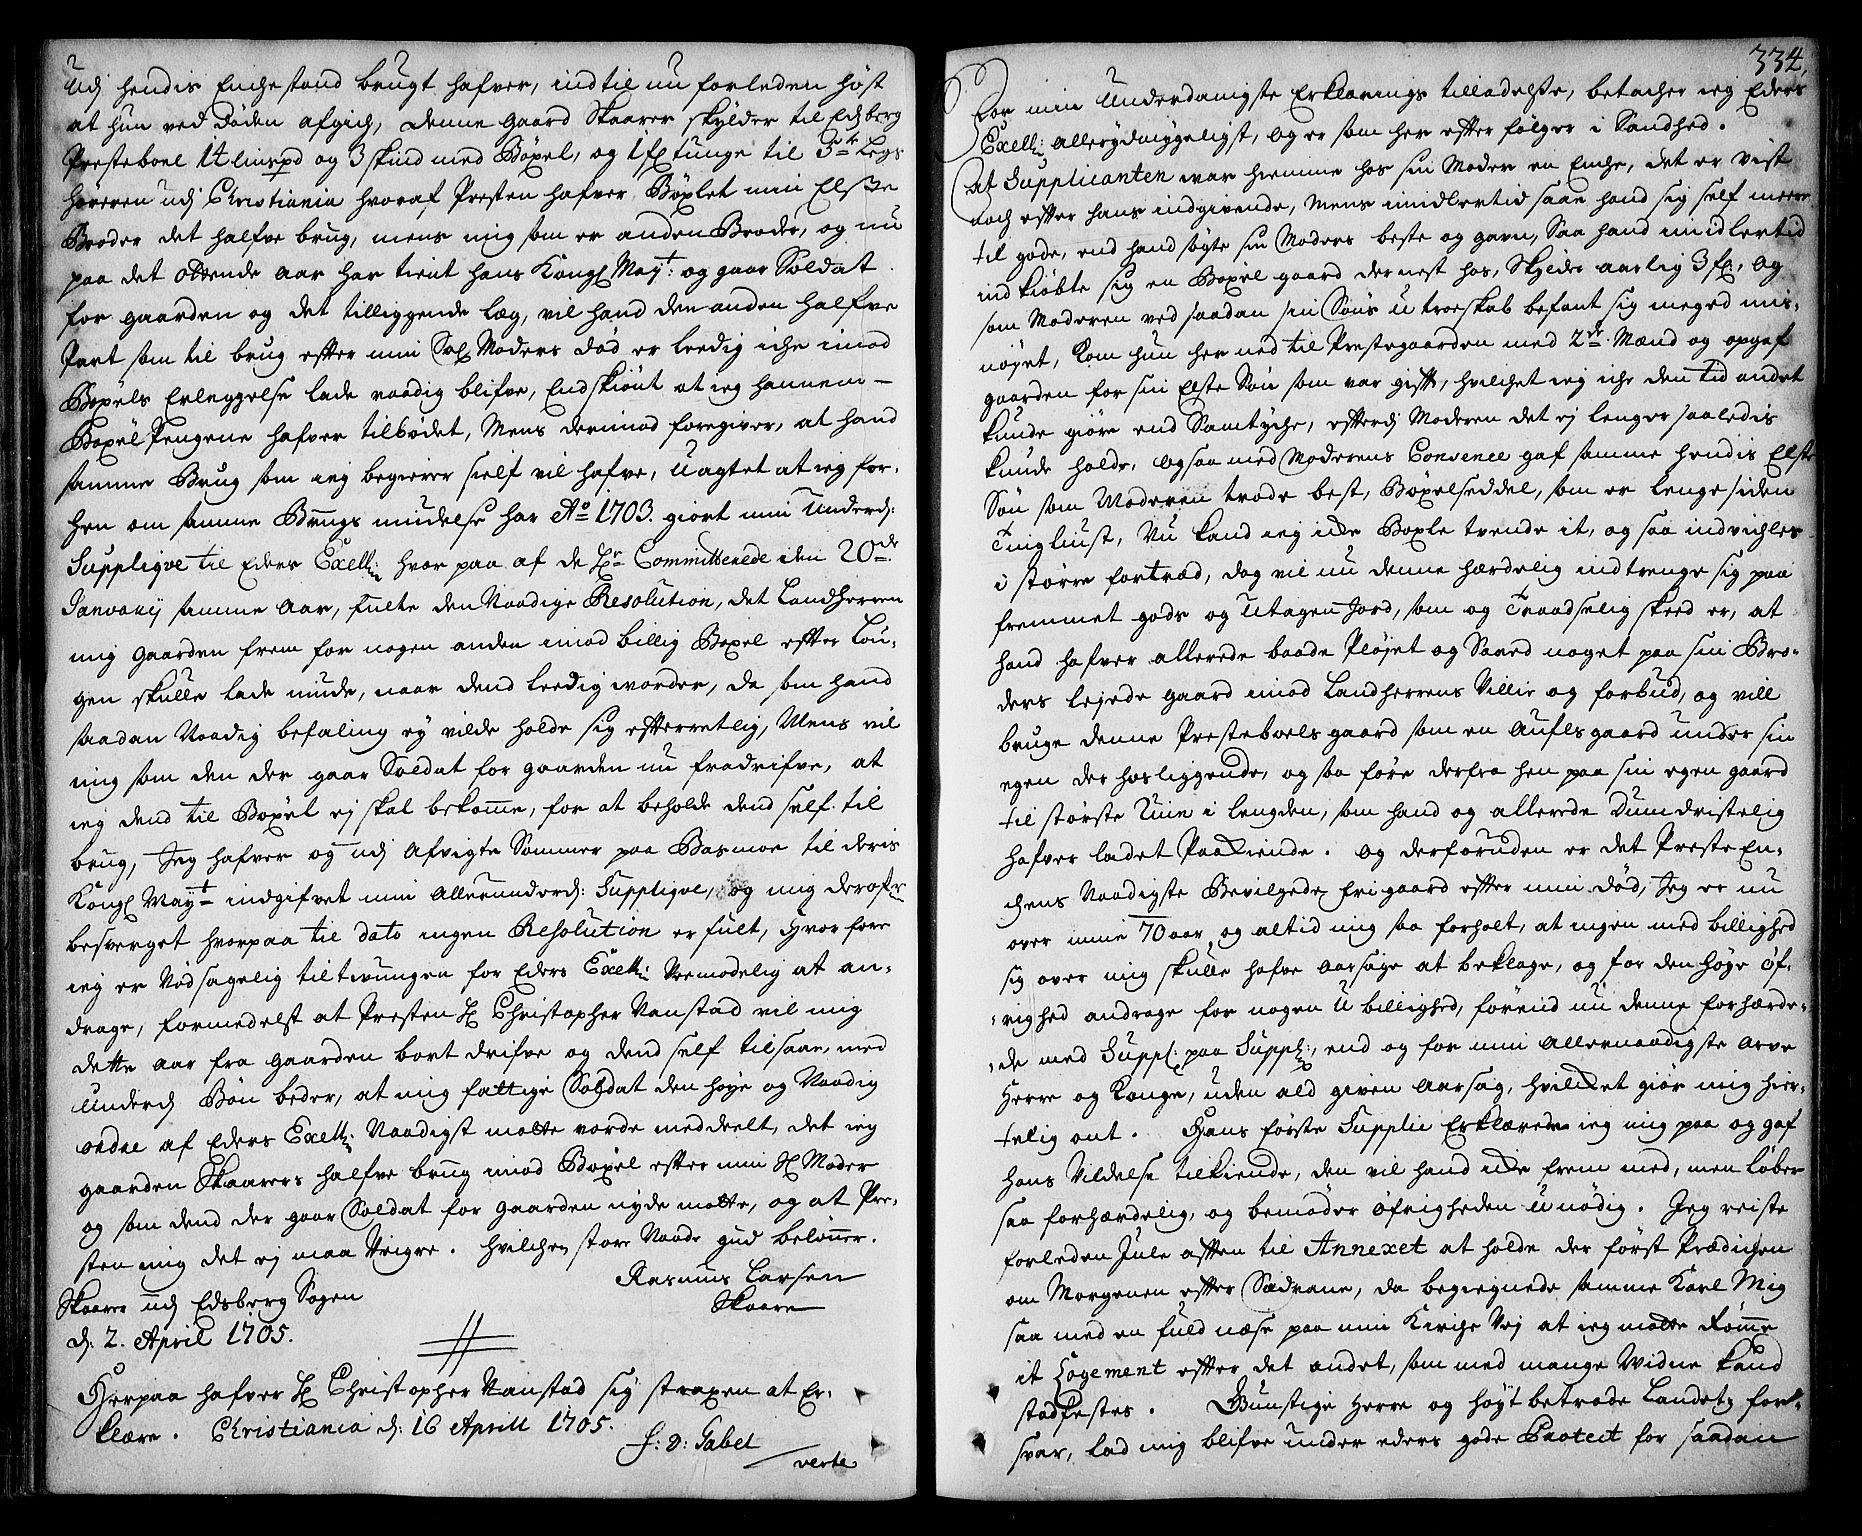 Udj hendis Enche stand brugt hafver, indtil nu forleden höst
at hun ved döden afgich, denne gaard Skaarer skylder til Edsberg
Presteboel 14 lispd og 3 skind med Böxel, og 1 fl tunge til 3de Lego
höreren udj Christiania hvoraf Presten hafver Böxlet min Elste
Broder det halfve brug, mens mig som er anden Broder, og nu
paa det ottende aar har tient hans Kongl Mayt: og gaar Soldat
for gaarden og det tilliggende læg, vil hand den anden halfve
Part som til brug efter min Sal Moders död er leedig iche imod
Böxels Erleggelse lade naadig blifve, Endskiönt at ieg hannem
Böxel Pengene hafver tilbödet, Mens derimod foregiver, at hand
samme Brug som ieg begierer sielf vil hafve, Uagtet at ieg for-
hen om samme Brugs niudelse har Ao 1703. giort min Underd:
Suppliqve til Eders Excell: hvor paa af de Hr Committerede den 20de
Janvarij samme aar, fulte den Naadige Resolution, det Landherren
mig gaarden frem for nogen anden imod billig Böxel efter Lou-
gen skulle lade niude, naar dend leedig worder, da som hand
saadan Naadig befaling ey vilde holde sig efterretlig, Mens vil
mig som den der gaar Soldat for gaarden nu fradrifve, at
ieg dend til Böxel ej skal bekome, for at beholde dend self til
brug, Jeg hafver og udj afvigte Sommer paa Basmoe til deris
Kongl Mayt indgifvet min Allerunderd: Suppliqve, og mig derofr
besverget hvorpaa til dato ingen Resolution er fult, Hvor fore
ieg er Nödsagelig tiltwungen for Eders Excell: Veemodelig at an-
drage, formedelst at Presten Hr Christopher Nanstad vil mig
dette aar fra gaarden bort drifve og dend self tilsaae, med
Underd Bön beder, at mig fattige Soldat den höye og Naadig
ordre af Eders Excell: Naadigst motte vorde meddeelt, det ieg
gaarden Skaarers halfve brug imod Böxel efter min Sl Moder
og som dend der gaar Soldat for gaarden nyde motte, og at Pre-
sten mig det ej maa Veigre. hvilchen store Naade gud belönner.
Rasmus Larsen
Skaare
Skaarer udj Edsberg Sogen
d: 2. April 1705.
Herpaa hafver Hr Christopher Nanstad sig straxen at Er-
klære. Christiania d: 16 Aprill 1705.
F: D: Gabel
verte
334.
For min Underdanigste Erklærings tilladelse, betacher ieg Eders
Excell: allerydmygeligst, og er som her efter fölger i Sandhed.
At Supplicanten war hiemme hos sin Moder en Enche, det er vist
noch efter hans indgivende, Mens imidlertid saae hand sig self meere
til gode, end hand sögte sin Moders beste og gavn, Saa hand imidlertid
ind kiöbte sig en Böxel gaard dernest hos, Skylder aarlig 3 fl, og
som Moderen ved saadan sin Söns utroeskab befant sig meged mis-
nöyet, kom hun her ned til Prestegaarden med 2de Mænd og opgaf
gaarden for sin Elste Sön som var gift, hvilchet ieg iche den tid andet
kunde giöre end Samtyche, efterdj Moderen det ej lenger saaledis
kunde holde, ogsaa med Moderens Convence gaf samme hendis Elste
Sön som Moderen trode best, Böxelseddel, som er lenge siden
Tingliust, Nu kand ieg icke Böxle tvende it, og saa indvichles
i större fortred, dog vil nu denne hærdelig indtrenge sig paa
fremmet gods og Utagen Jord, som og Traadselig skeed er, at
hand hafver allerede baade Plöjet og Saaed noget paa sin Bro-
ders lejede gaard imod Landherrens Villie og forbud, og vill
bruge denne Presteboels gaard som en Aufls gaard under sin
egen der hosliggende, og saa före derfra hen paa sin egen gaard
til störste Ruin i lengden, som hand og allerede Dumdristelig
hafver ladet Paakiende. og derforuden er det Preste En-
chens Naadigste Bevilgede frigaard efter min död, Jeg er nu
over mine 70 aar, og altid mig saa forholt, at ingen med billighed
sig over mig skulle hafve aarsage at beklage, og for den höye öf-
righed andrage for nogen Ubillighed, förend nu denne forhærde-
de med Suppl: paa Suppl:, end og for min Allernaadigste Arve
Herre og Konge, uden ald given Aarsag, hvilcket giör mig hier-
telig ont. Hans förste Supplic Erklærede ieg mig paa og gaf
hans Vildelse tilkiende, den vil hand icke frem med, men löber
saa forhærdelig, og bemöder öfrigheden unödig. Jeg reiste
forleden Jule aften til Annexet at holde der först Prædichen
om Morgenen efter Sædvane, da begiegnede samme Karl Mig
saa med en fuld næse paa min Kirche Vej at ieg motte Römme
it Logement efter det andet, som med mange Widne kand
stadfestes. Gunstige Herre og höyt betrode Landets for-
svar, lad mig blifve under eders gode Protect for saadan